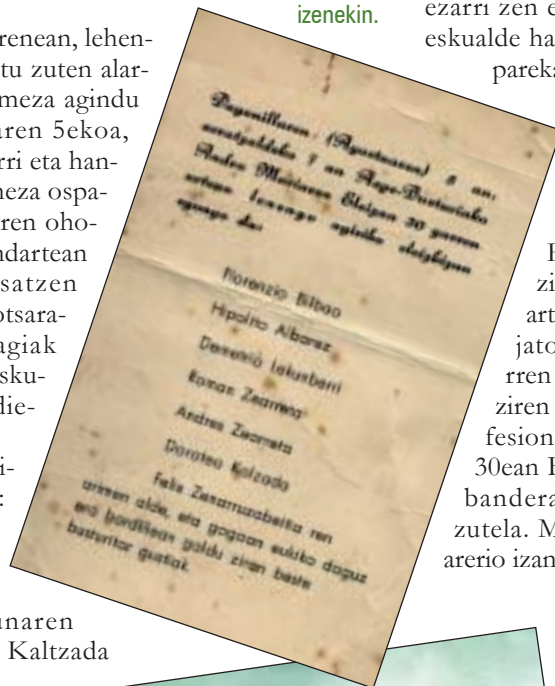 izenekin.
renean, lehen-
tu zuten alar-
meza agindu
aren 5ekoa,
rri eta han-
neza ospa-
ren oho-
ndartean
satzen
otsara-
agiak
sku-
die-
i-
:
unaren
Kaltzada
Dagonillaren, (Agostuaren) 5 an,
arratsaldeko 7 an Axpe-Busturiako
Andra Mariaren Eleizan 30 garren
urtean lenengo agiriko eleizkizun
egingo da:
Florenzio Bilbao
Hipolito Albarez
Demetrio Lekunberri
Roman
Andres
Dorotea Kalzada
Felix Zenarruzabeitia ren
arimen alde, eta gogoan eukiko doguz
era bardiñean galdu ziran beste
busturitar guztiak.
ezarri zen e
eskualde ha
pareka
zi
art
jato
rren
ziren
fesion
30ean E
bandera
zutela. M
arerio izan